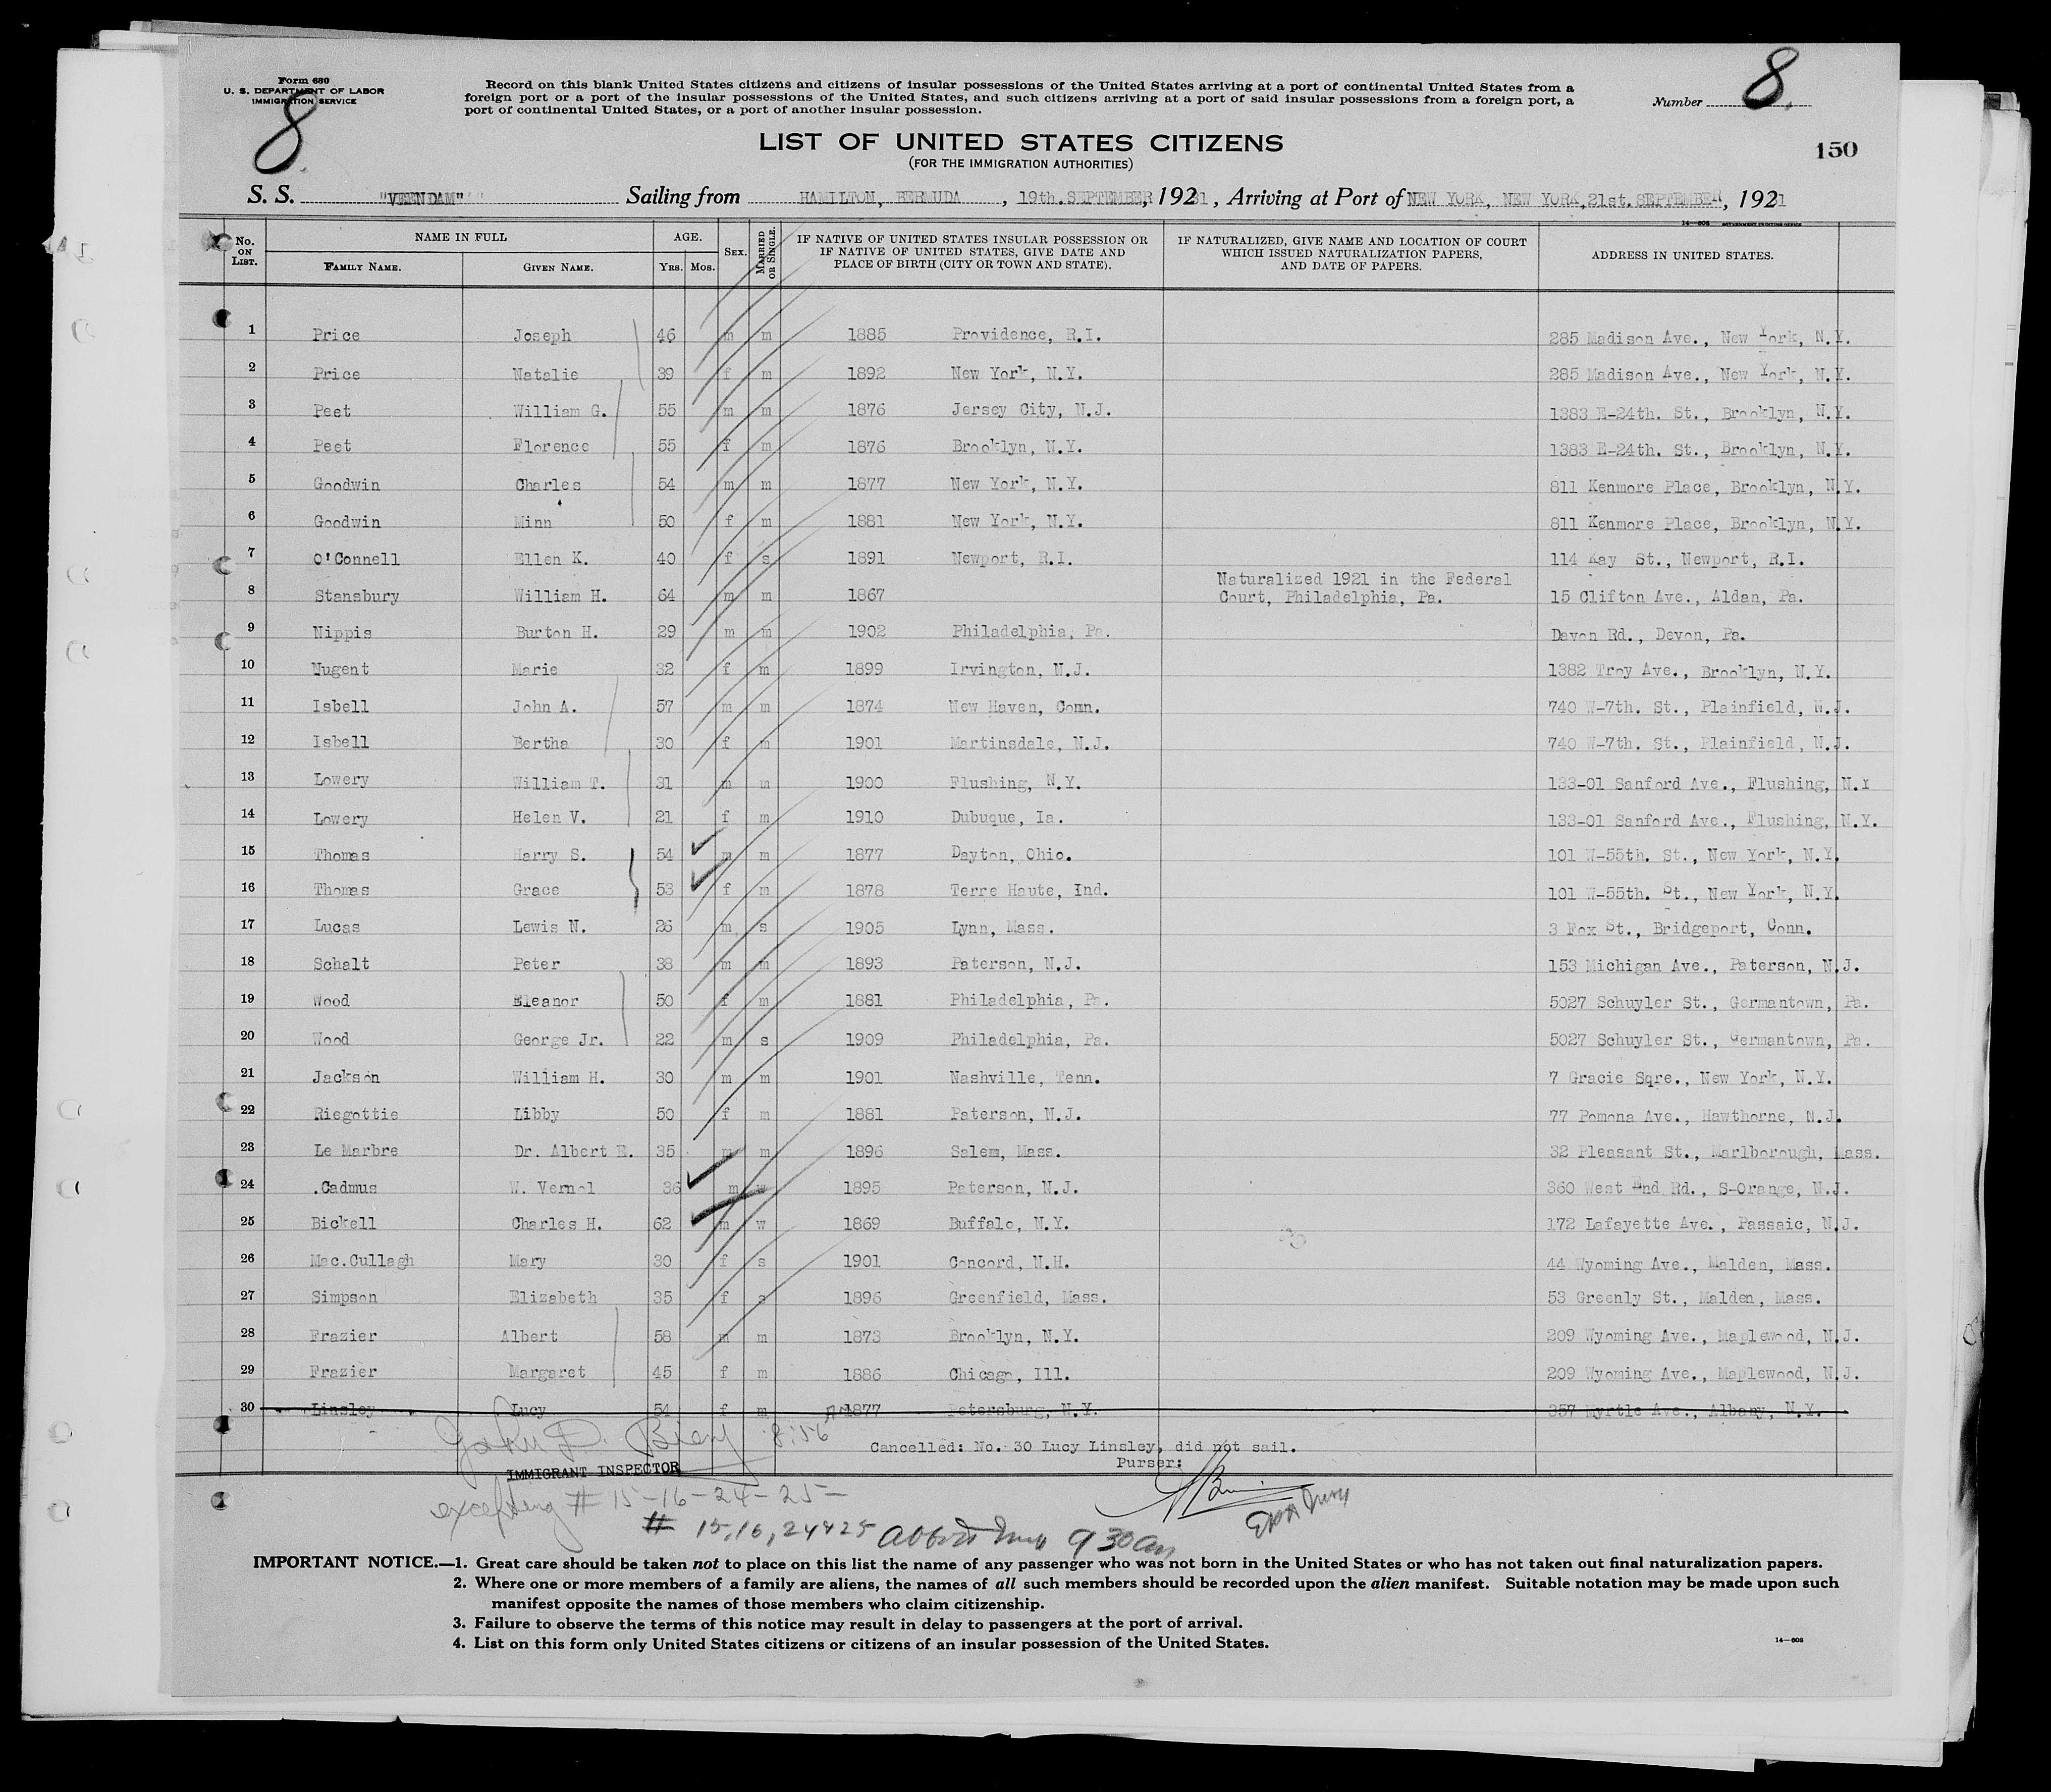 Form 630
U. S. DEPARTMENT OF LABOR
IMMIGRATION SERVICE
8
Record on this blank United States citizens and citizens of insular possessions of the United States arriving at a port of continental United States from a
foreign port or a port of the insular possessions of the United States, and such citizens arriving at a port of said insular possessions from a foreign port, a
port of continental United States, or a port of another insular possession.
Number 8.
LIST OF UNITED STATES CITIZENS
(FOR THE IMMIGRATION AUTHORITIES)
150
S. S. "VEENDAM" Sailing from HAMILTON, BERMUDA, 19th. SEPTEMBER, 1931, Arriving at Port of NEW YORK, NEW YORK, 21st. SEPTEMBER, 1931
14—608 GOVERNMENT PRINTING OFFICE
No. ON LIST. NAME IN FULL FAMILY NAME. GIVEN NAME. AGE. YRS. MOS. SEX. MARRIED OR SINGLE. IF NATIVE OF UNITED STATES INSULAR POSSESSION OR IF NATIVE OF UNITED STATES, GIVE DATE AND PLACE OF BIRTH (CITY OR TOWN AND STATE). IF NATURALIZED, GIVE NAME AND LOCATION OF COURT WHICH ISSUED NATURALIZATION PAPERS, AND DATE OF PAPERS. ADDRESS IN UNITED STATES.
1 Price Joseph 46 m m 1885 Providence, R.I. 285 Madison Ave., New York, N.Y.
2 Price Natalie 39 f m 1892 New York, N.Y. 285 Madison Ave., New York, N.Y.
3 Peet William G. 55 m m 1876 Jersey City, N.J. 1383 E-24th. St., Brooklyn, N.Y.
4 Peet Florence 55 f m 1876 Brooklyn, N.Y. 1383 E-24th. St., Brooklyn, N.Y.
5 Goodwin Charles 54 m m 1877 New York, N.Y. 811 Kenmore Place, Brooklyn, N.Y.
6 Goodwin Minn 50 f m 1881 New York, N.Y. 811 Kenmore Place, Brooklyn, N.Y.
7 O'Connell Ellen K. 40 f s 1891 Newport, R.I. 114 Kay St., Newport, R.I.
8 Stansbury William H. 64 m m 1867 Naturalized 1921 in the Federal Court, Philadelphia, Pa. 15 Clifton Ave., Aldan, Pa.
9 Nippis Burton H. 29 m m 1902 Philadelphia, Pa. Devon Rd., Devon, Pa.
10 Nugent Marie 32 f m 1899 Irvington, N.J. 1382 Troy Ave., Brooklyn, N.Y.
11 Isbell John A. 57 m m 1874 New Haven, Conn. 740 W-7th. St., Plainfield, N.J.
12 Isbell Bertha 30 f m 1901 Martinsdale, N.J. 740 W-7th. St., Plainfield, N.J.
13 Lowery William T. 31 m m 1900 Flushing, N.Y. 133-01 Sanford Ave., Flushing, N.Y
14 Lowery Helen V. 21 f m 1910 Dubuque, Ia. 133-01 Sanford Ave., Flushing, N.Y.
15 Thomas Harry S. 54 m m 1877 Dayton, Ohio. 101 W-55th. St., New York, N.Y.
16 Thomas Grace 53 f m 1878 Terre Haute, Ind. 101 W-55th. St., New York, N.Y.
17 Lucas Lewis N. 26 m s 1905 Lynn, Mass. 3 Fox St., Bridgeport, Conn.
18 Schalt Peter 38 m m 1893 Paterson, N.J. 153 Michigan Ave., Paterson, N.J.
19 Wood Eleanor 50 f m 1881 Philadelphia, Pa. 5027 Schuyler St., Germantown, Pa.
20 Wood George Jr. 22 m s 1909 Philadelphia, Pa. 5027 Schuyler St., Germantown, Pa.
21 Jackson William H. 30 m m 1901 Nashville, Tenn. 7 Gracie Sqre., New York, N.Y.
22 Riegottie Libby 50 f m 1881 Paterson, N.J. 77 Pomona Ave., Hawthorne, N.J.
23 Le Marbre Dr. Albert E. 35 m m 1896 Salem, Mass. 32 Pleasant St., Marlborough, Mass.
24 .Cadmus W. Vernol 36 m w 1895 Paterson, N.J. 360 West End Rd., S-Orange, N.J.
25 Bickell Charles H. 62 m w 1869 Buffalo, N.Y. 172 Lafayette Ave., Passaic, N.J.
26 Mac.Cullagh Mary 30 f s 1901 Concord, N.H. 44 Wyoming Ave., Malden, Mass.
27 Simpson Elizabeth 35 f s 1896 Greenfield, Mass. 53 Greenly St., Malden, Mass.
28 Frazier Albert 58 m m 1873 Brooklyn, N.Y. 209 Wyoming Ave., Maplewood, N.J.
29 Frazier Margaret 45 f m 1886 Chicago, Ill. 209 Wyoming Ave., Maplewood, N.J.
30 Linsley Lucy 54 f m 1877 Petersburg, N.Y. 357 Myrtle Ave., Albany, N.Y.
8:56
Cancelled: No. 30 Lucy Linsley, did not sail.
Purser:
IMMIGRANT INSPECTOR
excepting # 15-16-24-25-
# 15,16,24+25 9 30 am
IMPORTANT NOTICE.—1. Great care should be taken not to place on this list the name of any passenger who was not born in the United States or who has not taken out final naturalization papers.
2. Where one or more members of a family are aliens, the names of all such members should be recorded upon the alien manifest. Suitable notation may be made upon such
manifest opposite the names of those members who claim citizenship.
3. Failure to observe the terms of this notice may result in delay to passengers at the port of arrival.
4. List on this form only United States citizens or citizens of an insular possession of the United States.
14—608